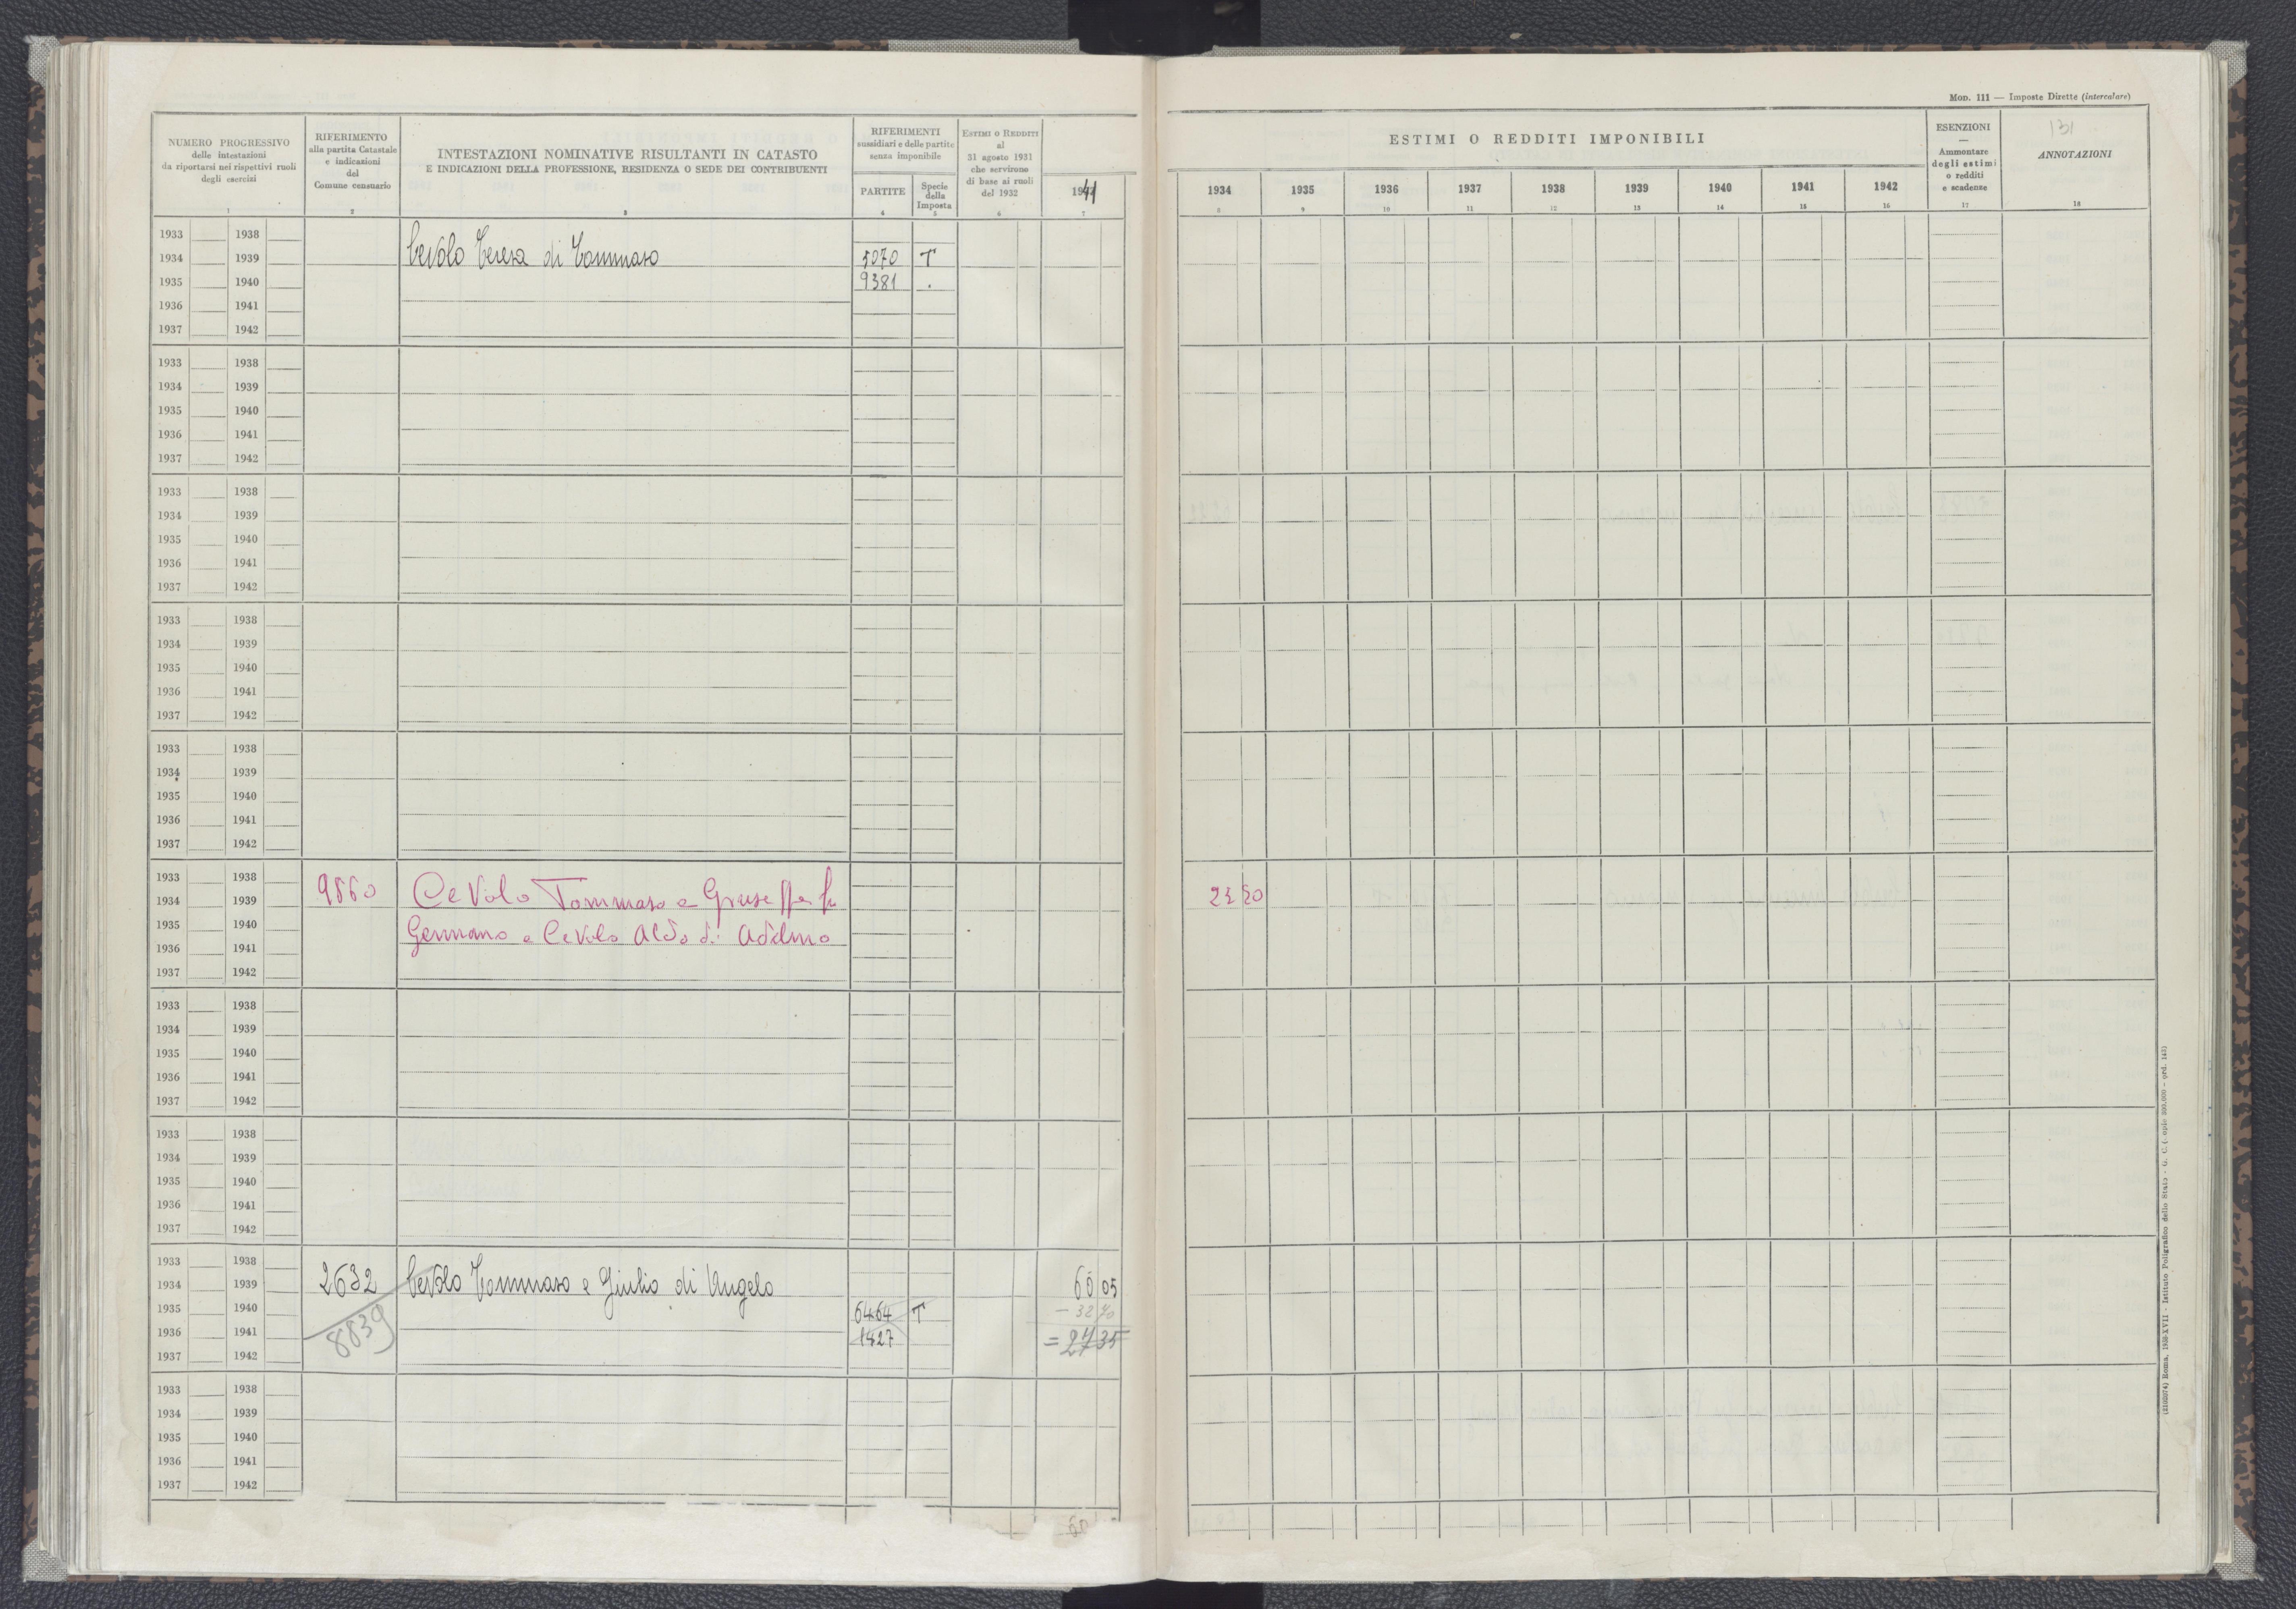 NUMERO PROGRESSIVO
delle intestazioni
da riportarsi nei rispettivi ruoli
degli esercizi
1
RIFERIMENTO
alla partita Catastale
e indicazioni
del
Comune censuario
2
INTESTAZIONI NOMINATIVE RISULTANTI IN CATASTO
E INDICAZIONI DELLA PROFESSIONE, RESIDENZA O SEDE DEI CONTRIBUENTI
3
RIFERIMENTI
sussidiari e delle partite
senza imponibile
PARTITE
4
Specie
della
Imposta
5
ESTIMI O REDDITI
al
31 agosto 1931
che servirono
di base ai ruoli
del 1932
6
7
1933 1938
1934 1939 Cevolo Teresa di Tommaso 5070 T
1935 1940 9381 .
1936 1941
1937 1942
1933 1938
1934 1939
1935 1940
1936 1941
1937 1942
1933 1938
1934 1939
1935 1940
1936 1941
1937 1942
1933 1938
1934 1939
1935 1940
1936 1941
1937 1942
1933 1938
1934 1939
1935 1940
1936 1941
1937 1942
1933 1938
1934 1939 9860 Cevolo Tommaso e Giuseppe fu
1935 1940 Germano e Cevolo Aldo di Adelmo
1936 1941
1937 1942
1933 1938
1934 1939
1935 1940
1936 1941
1937 1942
1933 1938
1934 1939
1935 1940
1936 1941
1937 1942
1933 1938
1934 1939 2632 Cevolo Tommaso e Giulio di Angelo 60 05
1935 1940 6464 T - 32 70
1936 1941 8839 1427 = 27 35
1937 1942
1933 1938
1934 1939
1935 1940
1936 1941
1937 1942
MOD. 111 — Imposte Dirette (intercalare)
ESTIMI O REDDITI IMPONIBILI
1934 1935 1936 1937 1938 1939 1940 1941 1942
8 9 10 11 12 13 14 15 16
ESENZIONI
—
Ammontare
degli estimi
o redditi
e scadenze
17
131
ANNOTAZIONI
18